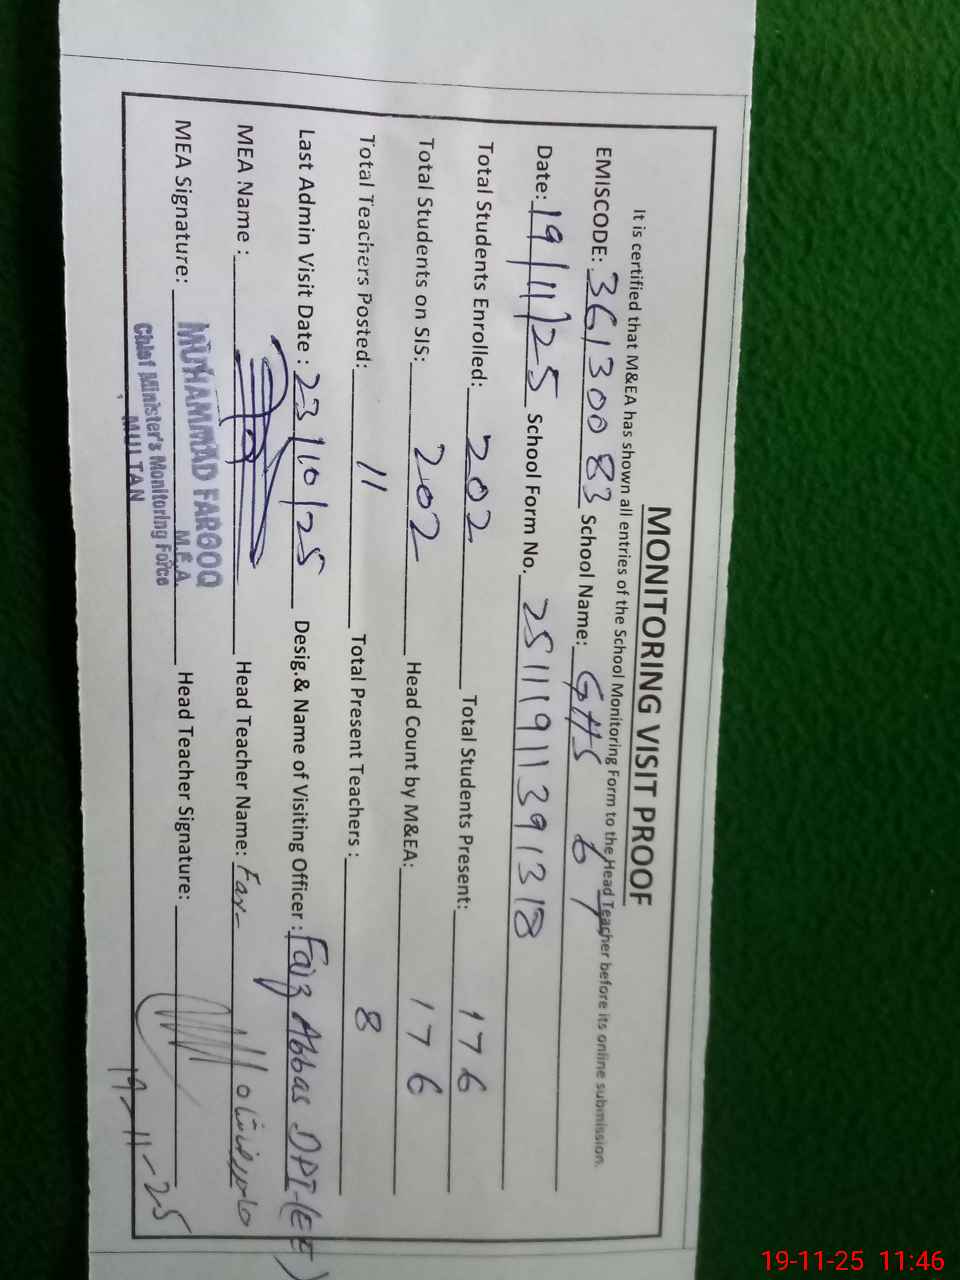 MONITORING VISIT PROOF
It is certified that M&EA has shown all entries of the School Monitoring Form to the Head Teacher before its online submission.
EMISCODE: 36130083 School Name: GHS 67
Date: 19/11/25 School Form No. 25111911391318
Total Students Enrolled: 202 Total Students Present: 176
Total Students on SIS: 202 Head Count by M&EA: 176
Total Teachers Posted: 11 Total Present Teachers : 8
Last Admin Visit Date : 23/10/25 Desig.& Name of Visiting Officer : Faiz Abbas DPI-(EE)
MEA Name : Head Teacher Name:
MEA Signature: Head Teacher Signature:
MUHAMMAD FAROOQ
M.E.A
Chief Minister's Monitoring Force
MULTAN
19-11-25
19-11-25 11:46